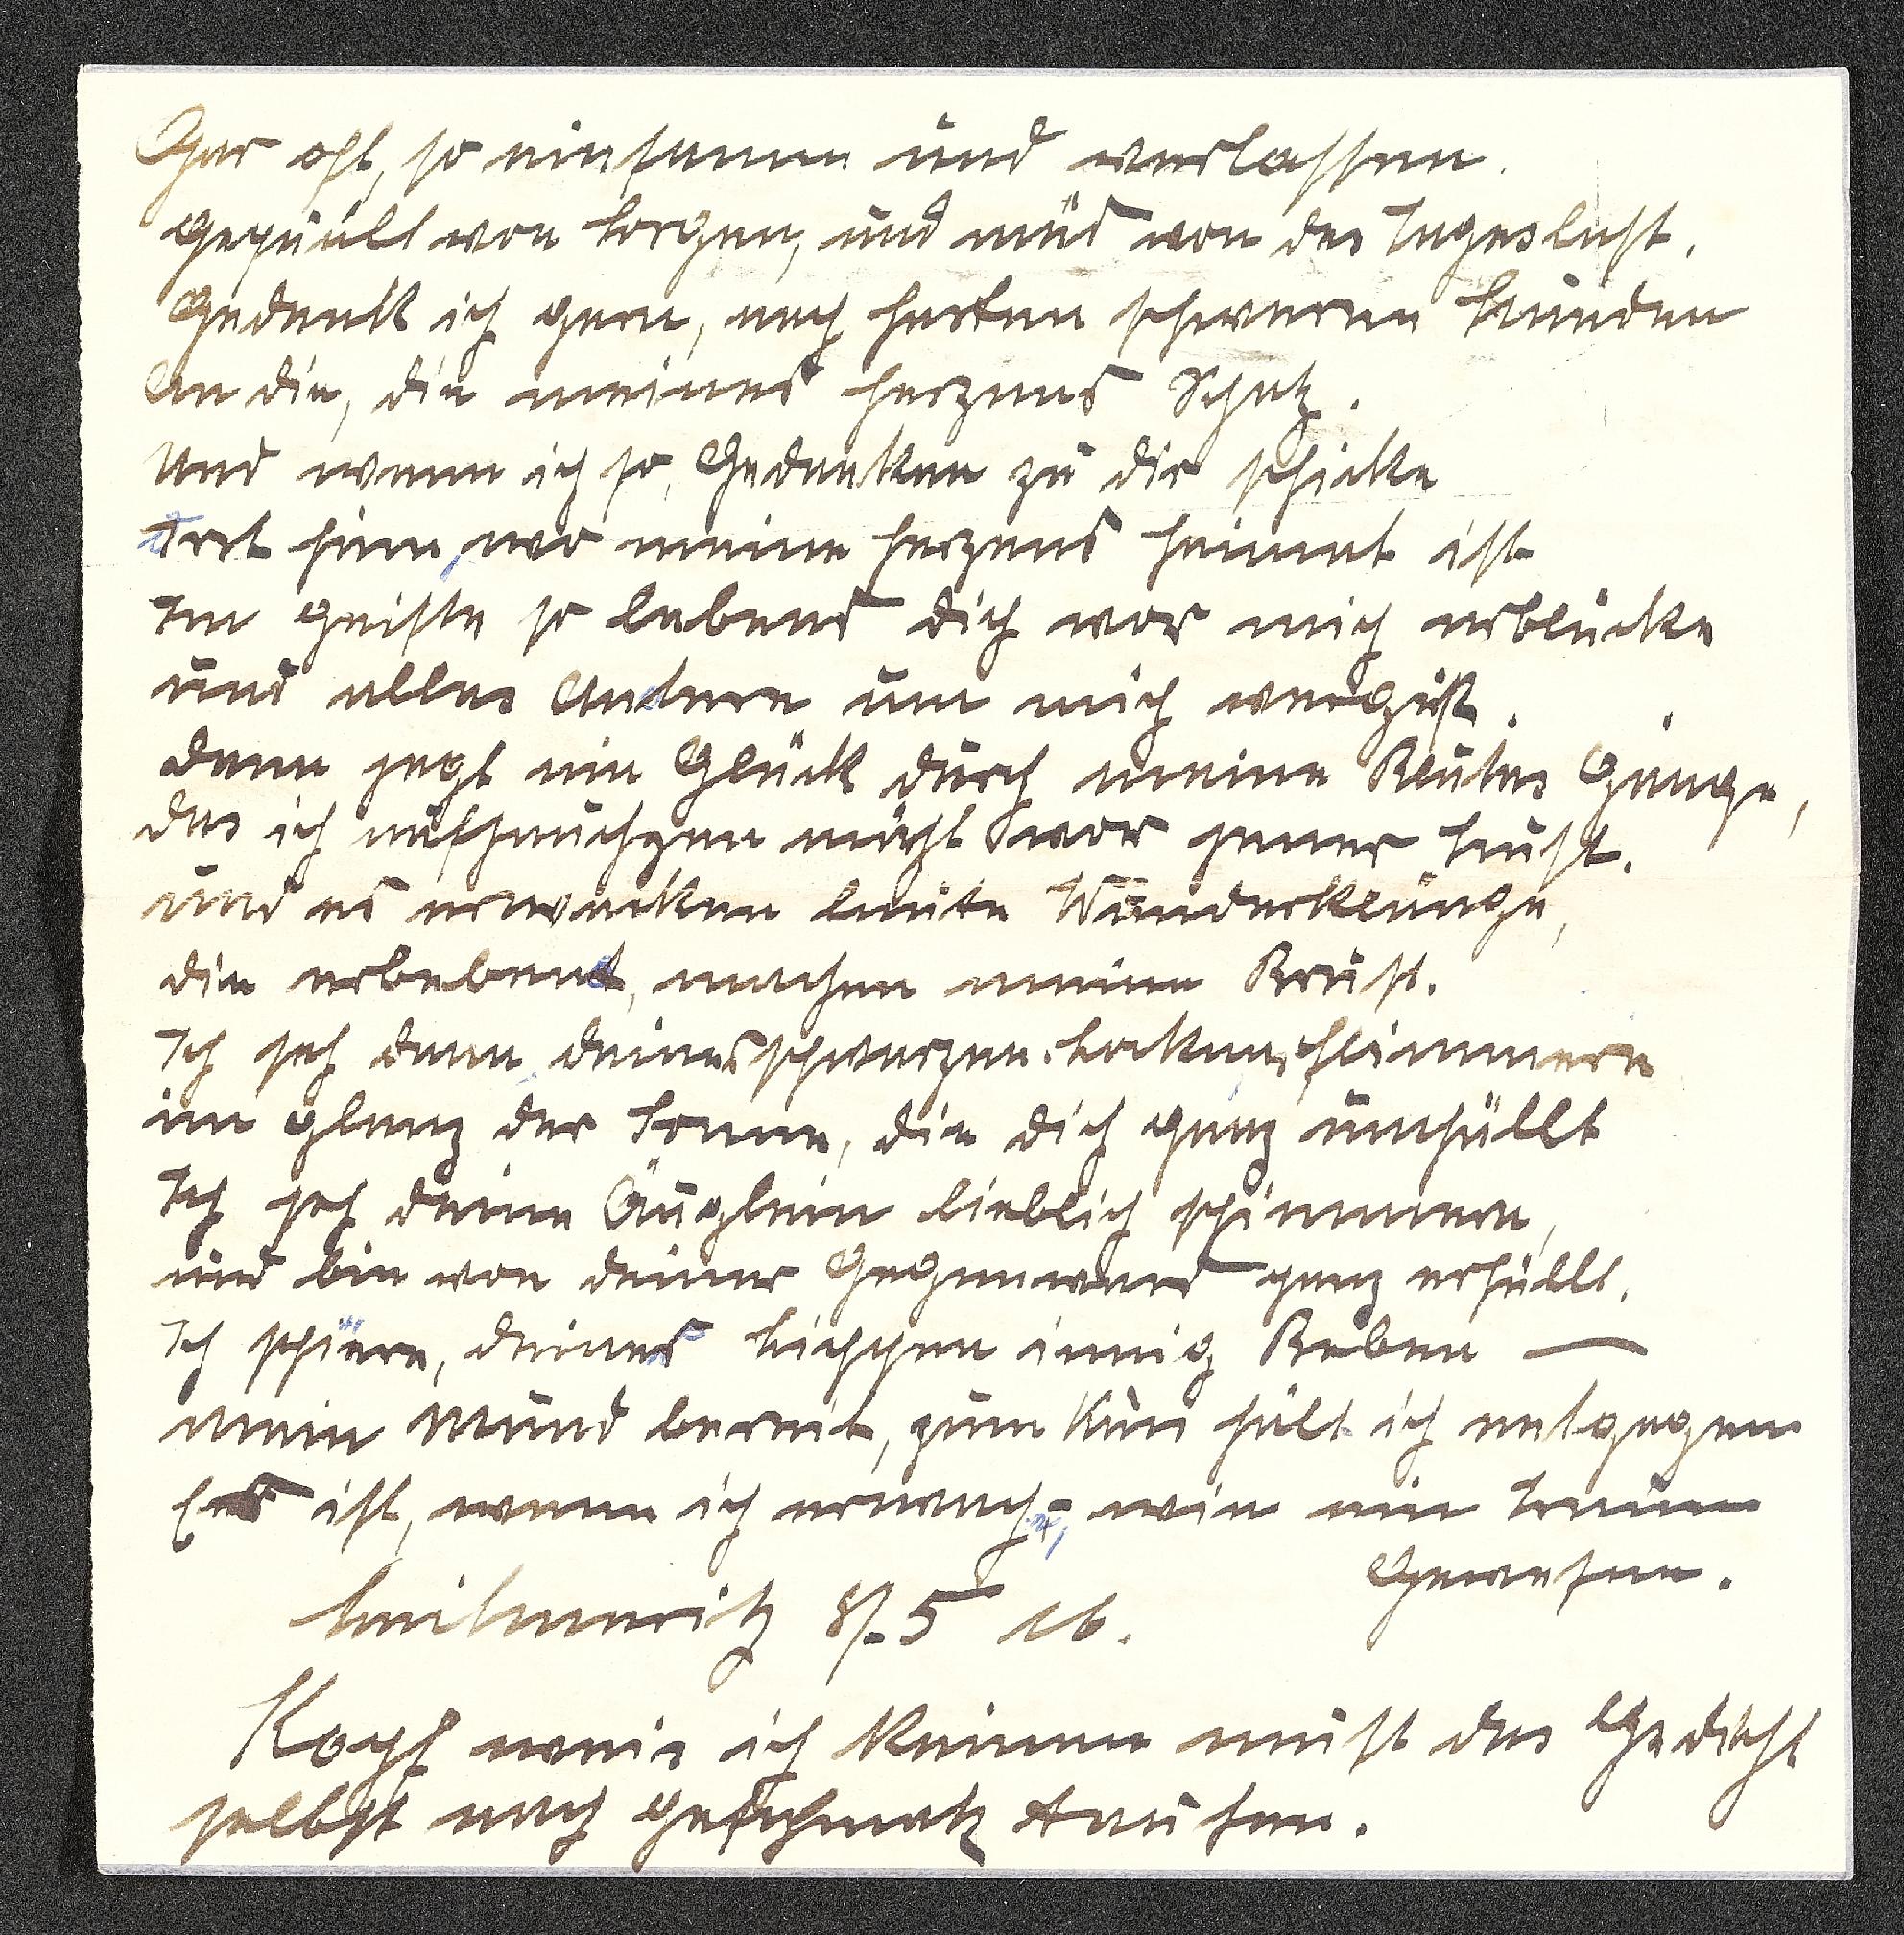 Gar oft, so einsamm und verlassen.
gequält von Sorgen, und müd von des Tageslast.
Gedenk ich gern, nach harten schweren Stunden
An die, die meines Herzens Schatz.
Und wenn ich so, Gedanken zu dir schicke
dort hinn, wo meine Herzens Heimat ist
Im Geiste so lebend dich vor mich erblicke
und alles Andere um mich vergißt.
dann jagt ein Glück durch meine Blutes Gänge,
das ich aufjauchzen möcht vor jener Lust.
und es erwecken laute Wunderklänge,
die erbebend, machen meine Brust.
Ich seh dann deine schwarzen Locken, flimmern
im glanz der Sonne, die dich ganz umhüllt
Ich seh deine Äuglein lieblich schimmern,
und bin von deiner Gegenward ganz erfüllt.
Ich spüre, deiner Lippen innig Beben —
mein Mund bereit, zum Kus hält ich entgegen
Es ist, wenn ich erwach, wie ein Traum
Gewesen.
Leitmeritz 8/5 16.
Kopf weis ich keinen must das Gedicht
selbst nach geschmak taufen.